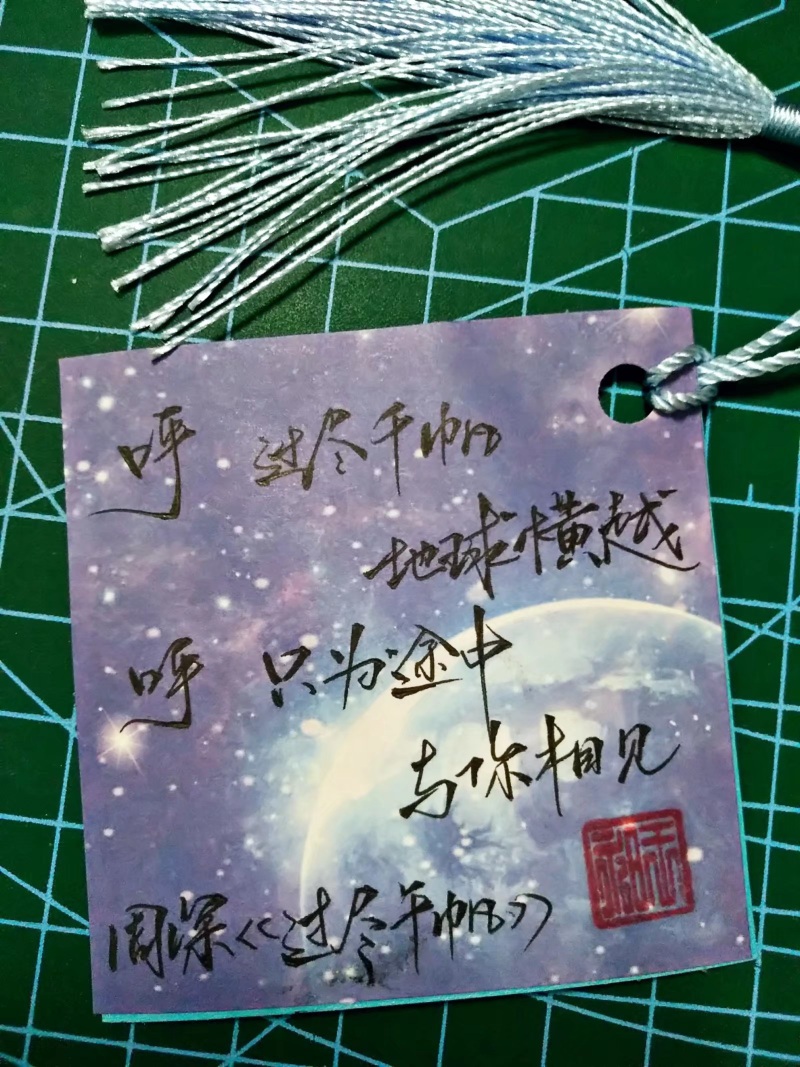 呼 过尽千帆
地球横越
呼 只为途中
与你相见
周深《过尽千帆》